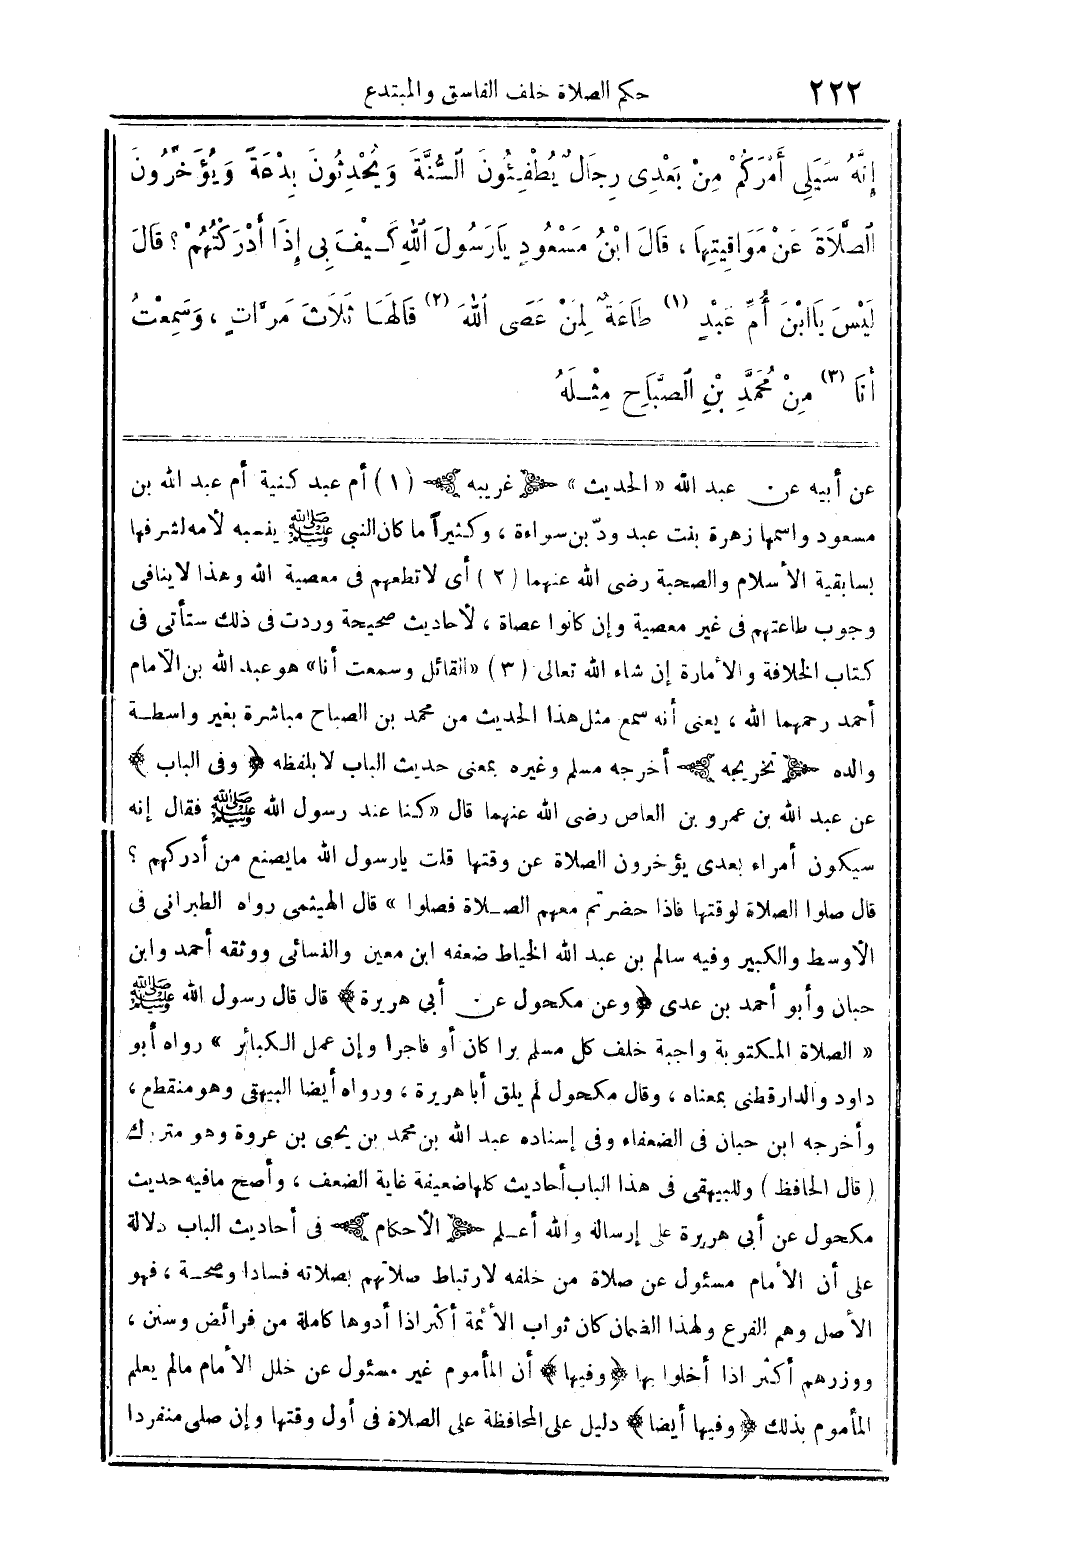 ٢٢٢ حكم الصلاة خلف الفاسق والمبتدع
إِنَّهُ سَيَلِي أَمْرَكُمْ مِنْ بَعْدِى رِجَالٌ يُطْفِئُونَ السُّنَّةَ وَيُحْدِثُونَ بِدْعَةً وَيُؤَخِّرُونَ
الصَّلَاةَ عَنْ مَوَاقِيتِهَا ، قَالَ ابْنُ مَسْعُودٍ يَارَسُولَ اللهِ كَيْفَ بِى إِذَا أَدْرَكْتُهُمْ ؟ قَالَ
لَيْسَ يَاابْنَ أُمِّ عَبْدٍ (١) طَاعَةٌ لِمَنْ عَصَى اللهَ (٢) قَالَهَا ثَلَاثَ مَرَّاتٍ ، وَسَمِعْتُ
أَنَا (٣) مِنْ مُحَمَّدِ بْنِ الصَّبَّاحِ مِثْلَهُ
عن أبيه عن عبد الله « الحديث » ﴿ غريبه ﴾ (١) أم عبد كنية أم عبد الله بن
مسعود واسمها زهرة بنت عبد ودّ بن سواءة ، وكثيراً ما كان النبي ﷺ ينسبه لأمه لشرفها
بسابقية الأسلام والصحبة رضى الله عنهما (٢) أى لاتطعهم فى معصية الله وهذا لاينافى
وجوب طاعتهم فى غير معصية وإن كانوا عصاة ، لأحاديث صحيحة وردت فى ذلك ستأتى فى
كتاب الخلافة والأمارة إن شاء الله تعالى (٣) «القائل وسمعت أنا» هو عبد الله بن الأمام
أحمد رحمهما الله ، يعنى أنه سمع مثل هذا الحديث من محمد بن الصباح مباشرة بغير واسطة
والده ﴿ تخريجه ﴾ أخرجه مسلم وغيره بمعنى حديث الباب لا بلفظه ﴿ وفى الباب ﴾
عن عبد الله بن عمرو بن العاص رضى الله عنهما قال «كنا عند رسول الله ﷺ فقال إنه
سيكون أمراء بعدى يؤخرون الصلاة عن وقتها قلت يارسول الله مايصنع من أدركهم ؟
قال صلوا الصلاة لوقتها فاذا حضرتم معهم الصلاة فصلوا » قال الهيثمى رواه الطبرانى فى
الأوسط والكبير وفيه سالم بن عبد الله الخياط ضعفه ابن معين والنسائى ووثقه أحمد وابن
حبان وأبو أحمد بن عدى ﴿ وعن مكحول عن أبى هريرة ﴾ قال قال رسول الله ﷺ
« الصلاة المكتوبة واجبة خلف كل مسلم برا كان أو فاجرا وإن عمل الكبائر » رواه أبو
داود والدارقطنى بمعناه ، وقال مكحول لم يلق أبا هريرة ، ورواه أيضا البيهقى وهو منقطع ،
وأخرجه ابن حبان فى الضعفاء وفى إسناده عبد الله بن محمد بن يحيى بن عروة وهو متروك
( قال الحافظ ) وللبيهقى فى هذا الباب أحاديث كلها ضعيفة غاية الضعف ، وأصح مافيه حديث
مكحول عن أبى هريرة على إرساله والله أعلم ﴿ الأحكام ﴾ فى أحاديث الباب دلالة
على أن الأمام مسئول عن صلاة من خلفه لارتباط صلاتهم بصلاته فسادا وصحة ، فهو
الأصل وهم الفرع ولهذا الضمان كان ثواب الأئمة أكثر اذا أدوها كاملة من فرائض وسنن ،
ووزرهم أكثر اذا أخلوا بها ﴿ وفيها ﴾ أن المأموم غير مسئول عن خلل الأمام مالم يعلم
المأموم بذلك ﴿ وفيها أيضا ﴾ دليل على المحافظة على الصلاة فى أول وقتها وإن صلى منفردا